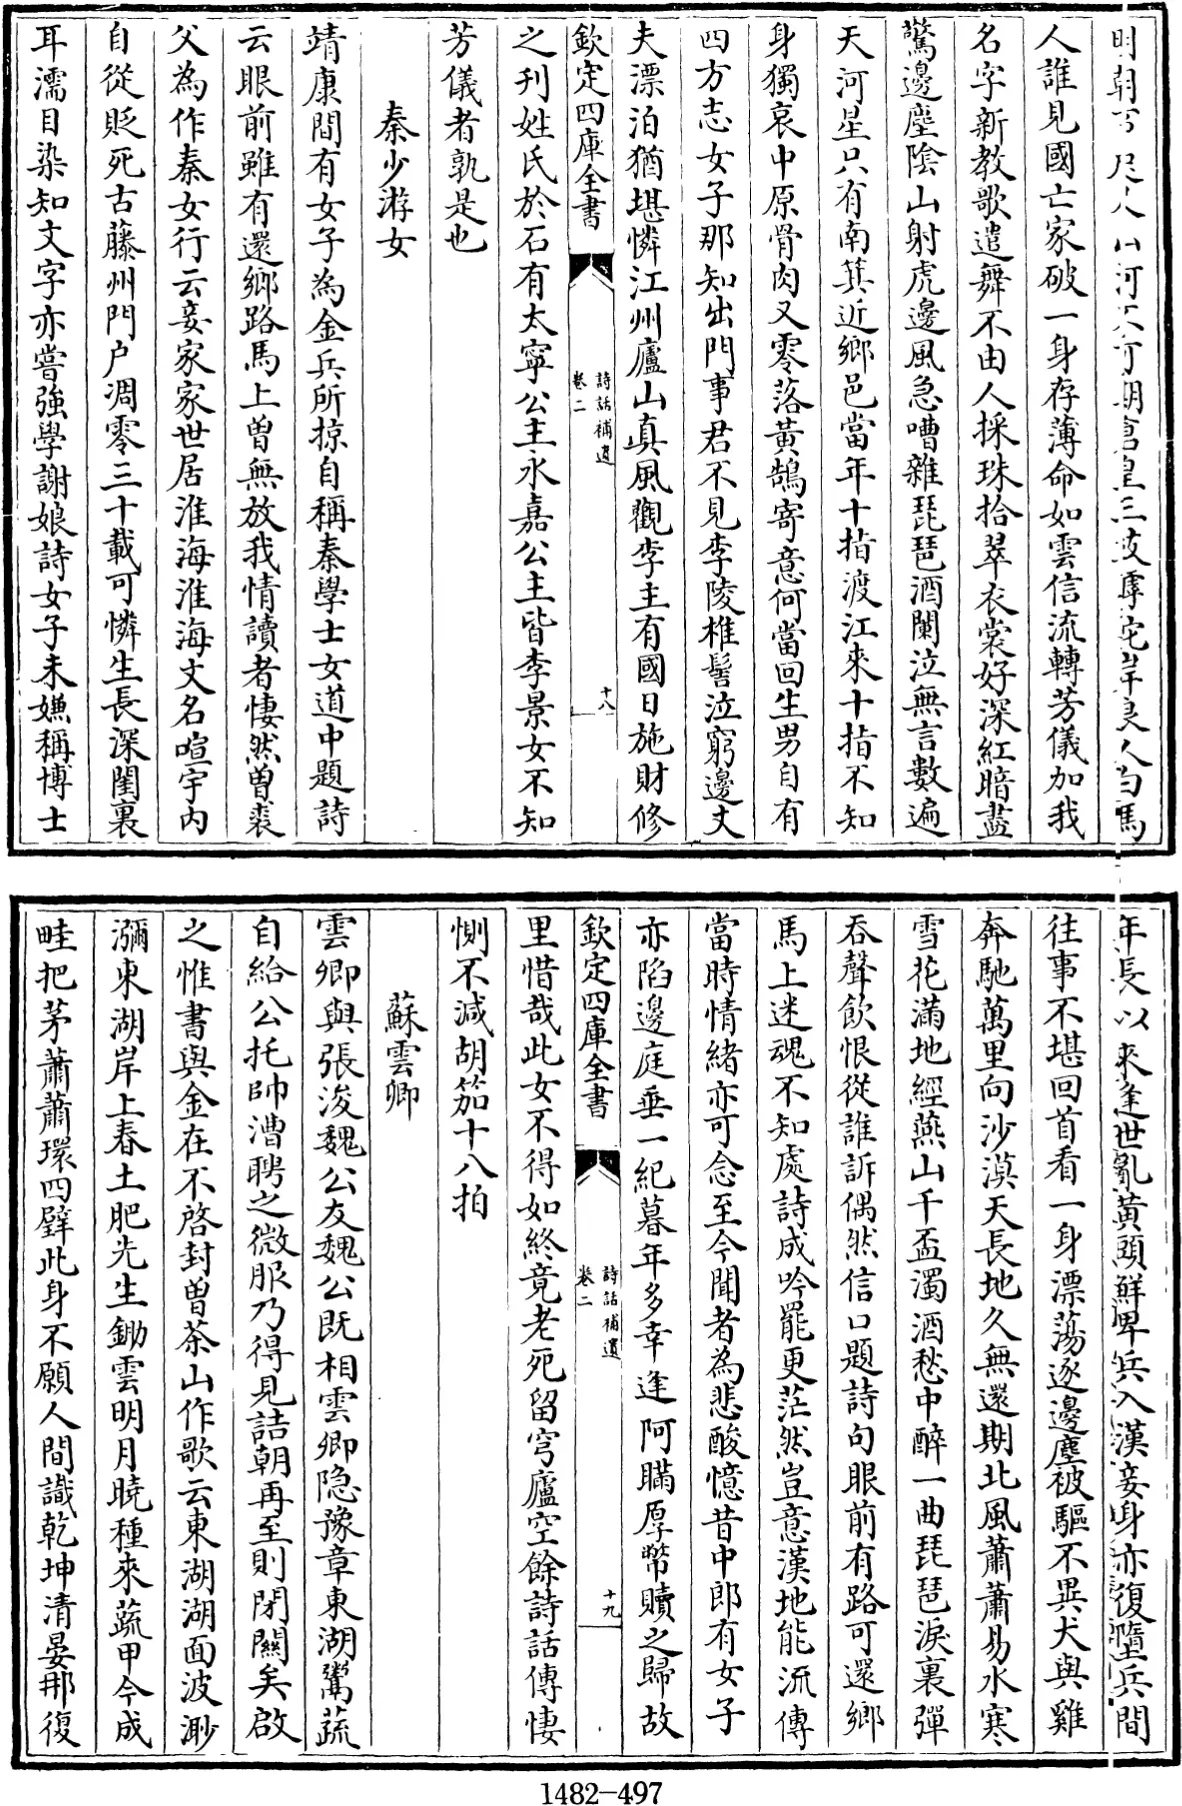 明朝 尺 山河不可期倉皇三 岸良人白馬
人誰見國亡家破一身存薄命如雲信流轉芳儀加我
名字新教歌遣舞不由人採珠拾翠衣裳好深紅暗盡
驚邊塵陰山射虎邊風急嘈雜琵琶酒闌泣無言數遍
天河星只有南箕近鄉邑當年十指渡江來十指不知
身獨哀中原骨肉又零落黃鵠寄意何當回生男自有
四方志女子那知出門事君不見李陵椎髻泣窮邊丈
夫漂泊猶堪憐江州廬山真風觀李主有國日施財修
欽定四庫全書
詩話補遺
卷二
十八
之刊姓氏於石有太寧公主永嘉公主皆李景女不知
芳儀者孰是也
秦少游女
靖康間有女子為金兵所掠自稱秦學士女道中題詩
云眼前雖有還鄉路馬上曽無放我情讀者悽然曽裘
父為作秦女行云妾家家世居淮海淮海文名喧宇内
自從貶死古藤州門户凋零三十載可憐生長深閨裏
耳濡目染知文字亦嘗強學謝娘詩女子未嫌稱博士
年長以來逢世亂黃頭鮮卑兵入漢妾身亦復墮兵間
往事不堪回首看一身漂蕩逐邊塵被驅不異犬與雞
奔馳萬里向沙漠天長地久無還期北風蕭蕭易水寒
雪花滿地經燕山千盃濁酒愁中醉一曲琵琶淚裏彈
吞聲飲恨從誰訴偶然信口題詩句眼前有路可還鄉
馬上迷魂不知處詩成吟罷更茫然豈意漢地能流傳
當時情緒亦可念至今聞者為悲酸憶昔中郎有女子
亦陷邊庭垂一紀暮年多幸逢阿瞞厚幣贖之歸故
欽定四庫全書
詩話補遺
卷二
十九
里惜哉此女不得如終竟老死留穹廬空餘詩話傳悽
惻不減胡笳十八拍
蘇雲卿
雲卿與張浚魏公友魏公既相雲卿隐豫章東湖鬻蔬
自給公托帥漕聘之微服乃得見詰朝再至則閉關矣啟
之惟書與金在不啓封曽茶山作歌云東湖湖面波渺
瀰東湖岸上春土肥先生鋤雲明月曉種來蔬甲今成
畦把茅蕭蕭環四壁此身不願人間識乾坤清晏那復
1482-497